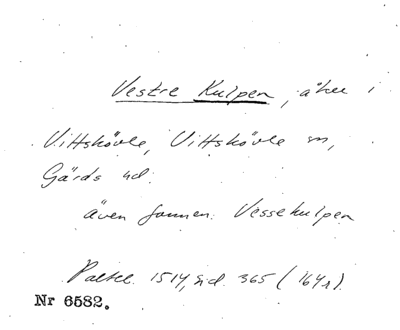 Vestre Kulpen, åker i
Vittskövle, Vittskövle sn,
Gärds hd.
även formen: Vessekulpen
1514, sid. 365 (1641).
Nr 6582.